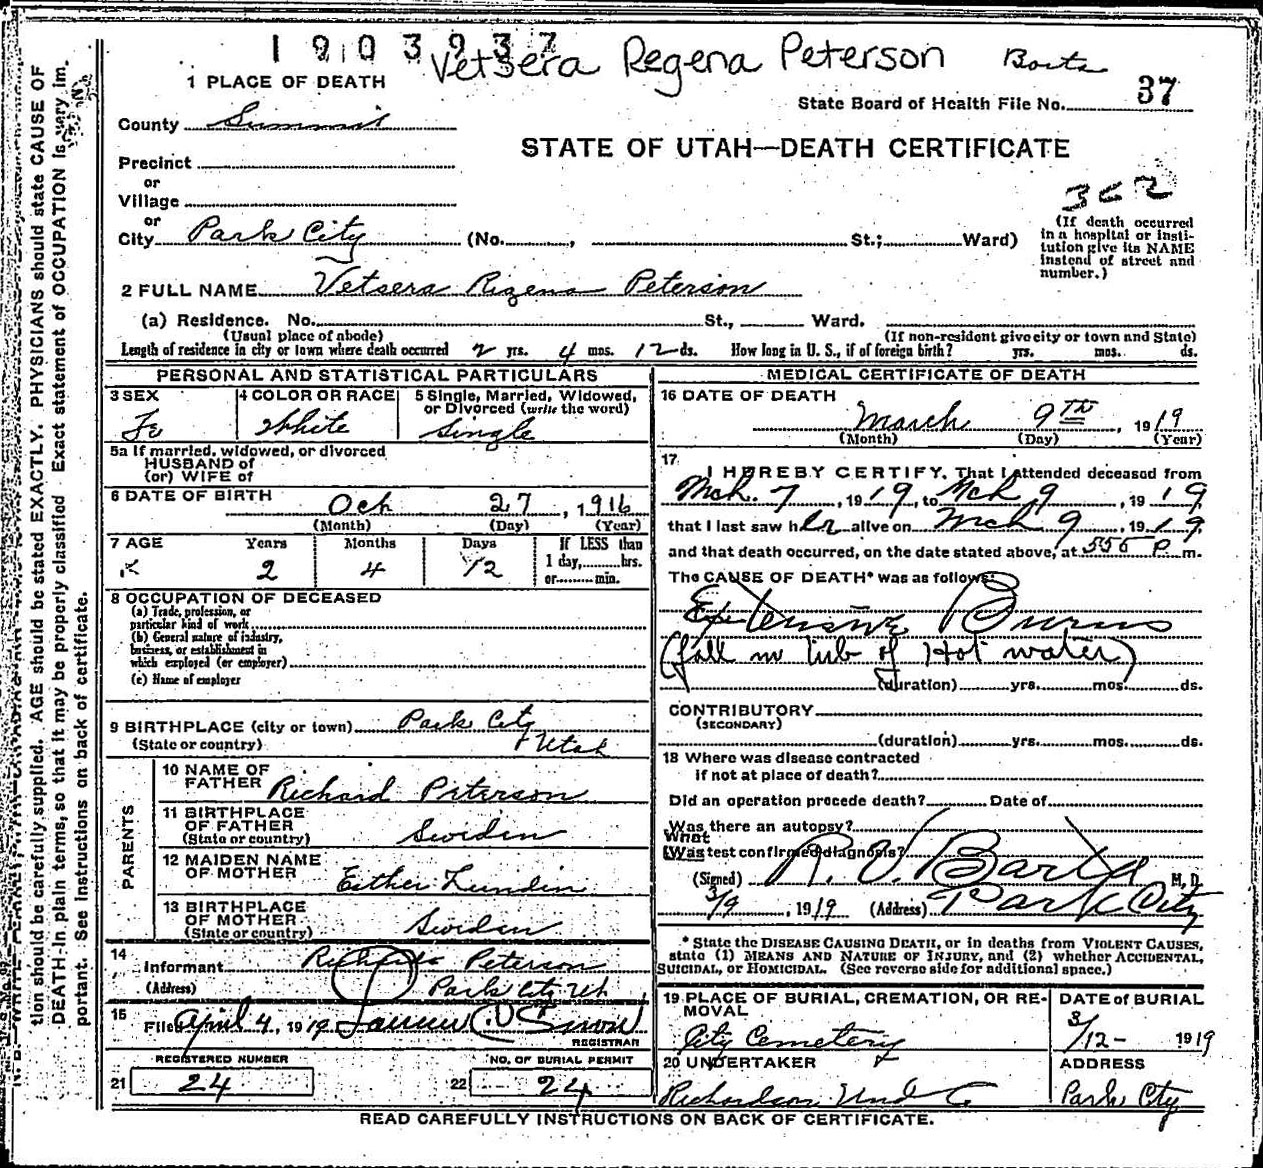 1 9 0 3 9 3 7
Vetsera Regena Peterson
1 PLACE OF DEATH
State Board of Health File No. 37
County Summit
STATE OF UTAH—DEATH CERTIFICATE
Precinct
or
Village
or
City Park City (No. , St.; Ward)
(If death occurred
in a hospital or insti-
tution give its NAME
instead of street and
number.)
2 FULL NAME Vetsera Regena Peterson
(a) Residence. No. St., Ward.
(Usual place of abode) (If non-resident give city or town and State)
Length of residence in city or town where death occurred 2 yrs. 4 mos. 12 ds. How long in U. S., if of foreign birth? yrs. mos. ds.
PERSONAL AND STATISTICAL PARTICULARS
3 SEX Fe
4 COLOR OR RACE White
5 Single, Married, Widowed,
or Divorced (write the word)
Single
5a If married, widowed, or divorced
HUSBAND of
(or) WIFE of
6 DATE OF BIRTH Oct 27, 1916
(Month) (Day) (Year)
7 AGE Years Months Days If LESS than
2 4 12 1 day, hrs.
or min.
8 OCCUPATION OF DECEASED
(a) Trade, profession, or
particular kind of work
(b) General nature of industry,
business, or establishment in
which employed (or employer)
(c) Name of employer
9 BIRTHPLACE (city or town) Park City
(State or country) Utah
PARENTS
10 NAME OF
FATHER Richard Peterson
11 BIRTHPLACE
OF FATHER
(State or country) Sweden
12 MAIDEN NAME
OF MOTHER Esther Lundin
13 BIRTHPLACE
OF MOTHER
(State or country) Sweden
14
Informant Richard Peterson
(Address) Park City Ut
15
Filed April 4, 1919
REGISTRAR
REGISTERED NUMBER NO. OF BURIAL PERMIT
21 24 22 24
MEDICAL CERTIFICATE OF DEATH
16 DATE OF DEATH
March 9TH, 1919
(Month) (Day) (Year)
17
I HEREBY CERTIFY, That I attended deceased from
Mch. 7, 1919, to Mch 9, 1919
that I last saw her alive on Mch 9, 1919
and that death occurred, on the date stated above, at 555 P m.
The CAUSE OF DEATH* was as follows:
Extensive Burns
(fall in tub of Hot water)
(duration) yrs. mos. ds.
CONTRIBUTORY
(SECONDARY)
(duration) yrs. mos. ds.
18 Where was disease contracted
if not at place of death?
Did an operation precede death? Date of
Was there an autopsy?
What
Was test confirmed diagnosis?
(Signed) R. V. Barta M. D.
3/9, 1919 (Address) Park City
* State the DISEASE CAUSING DEATH, or in deaths from VIOLENT CAUSES,
state (1) MEANS AND NATURE OF INJURY, and (2) whether ACCIDENTAL,
SUICIDAL, or HOMICIDAL. (See reverse side for additional space.)
19 PLACE OF BURIAL, CREMATION, OR RE-
MOVAL
City Cemetery
DATE of BURIAL
3/12- 1919
20 UNDERTAKER
Richardson Und Co
ADDRESS
Park City
READ CAREFULLY INSTRUCTIONS ON BACK OF CERTIFICATE.
tion should be carefully supplied. AGE should be stated EXACTLY. PHYSICIANS should state CAUSE OF
DEATH in plain terms, so that it may be properly classified. Exact statement of OCCUPATION is very im-
portant. See instructions on back of certificate.